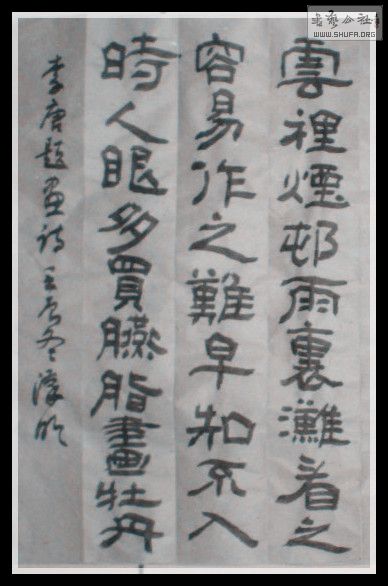 書藝公社
WWW.SHUFA.ORG
雲裡煙邨雨裏灘看之
容易作之難早知不入
時人眼多買臙脂畫牡丹
李唐題畫詩壬辰冬